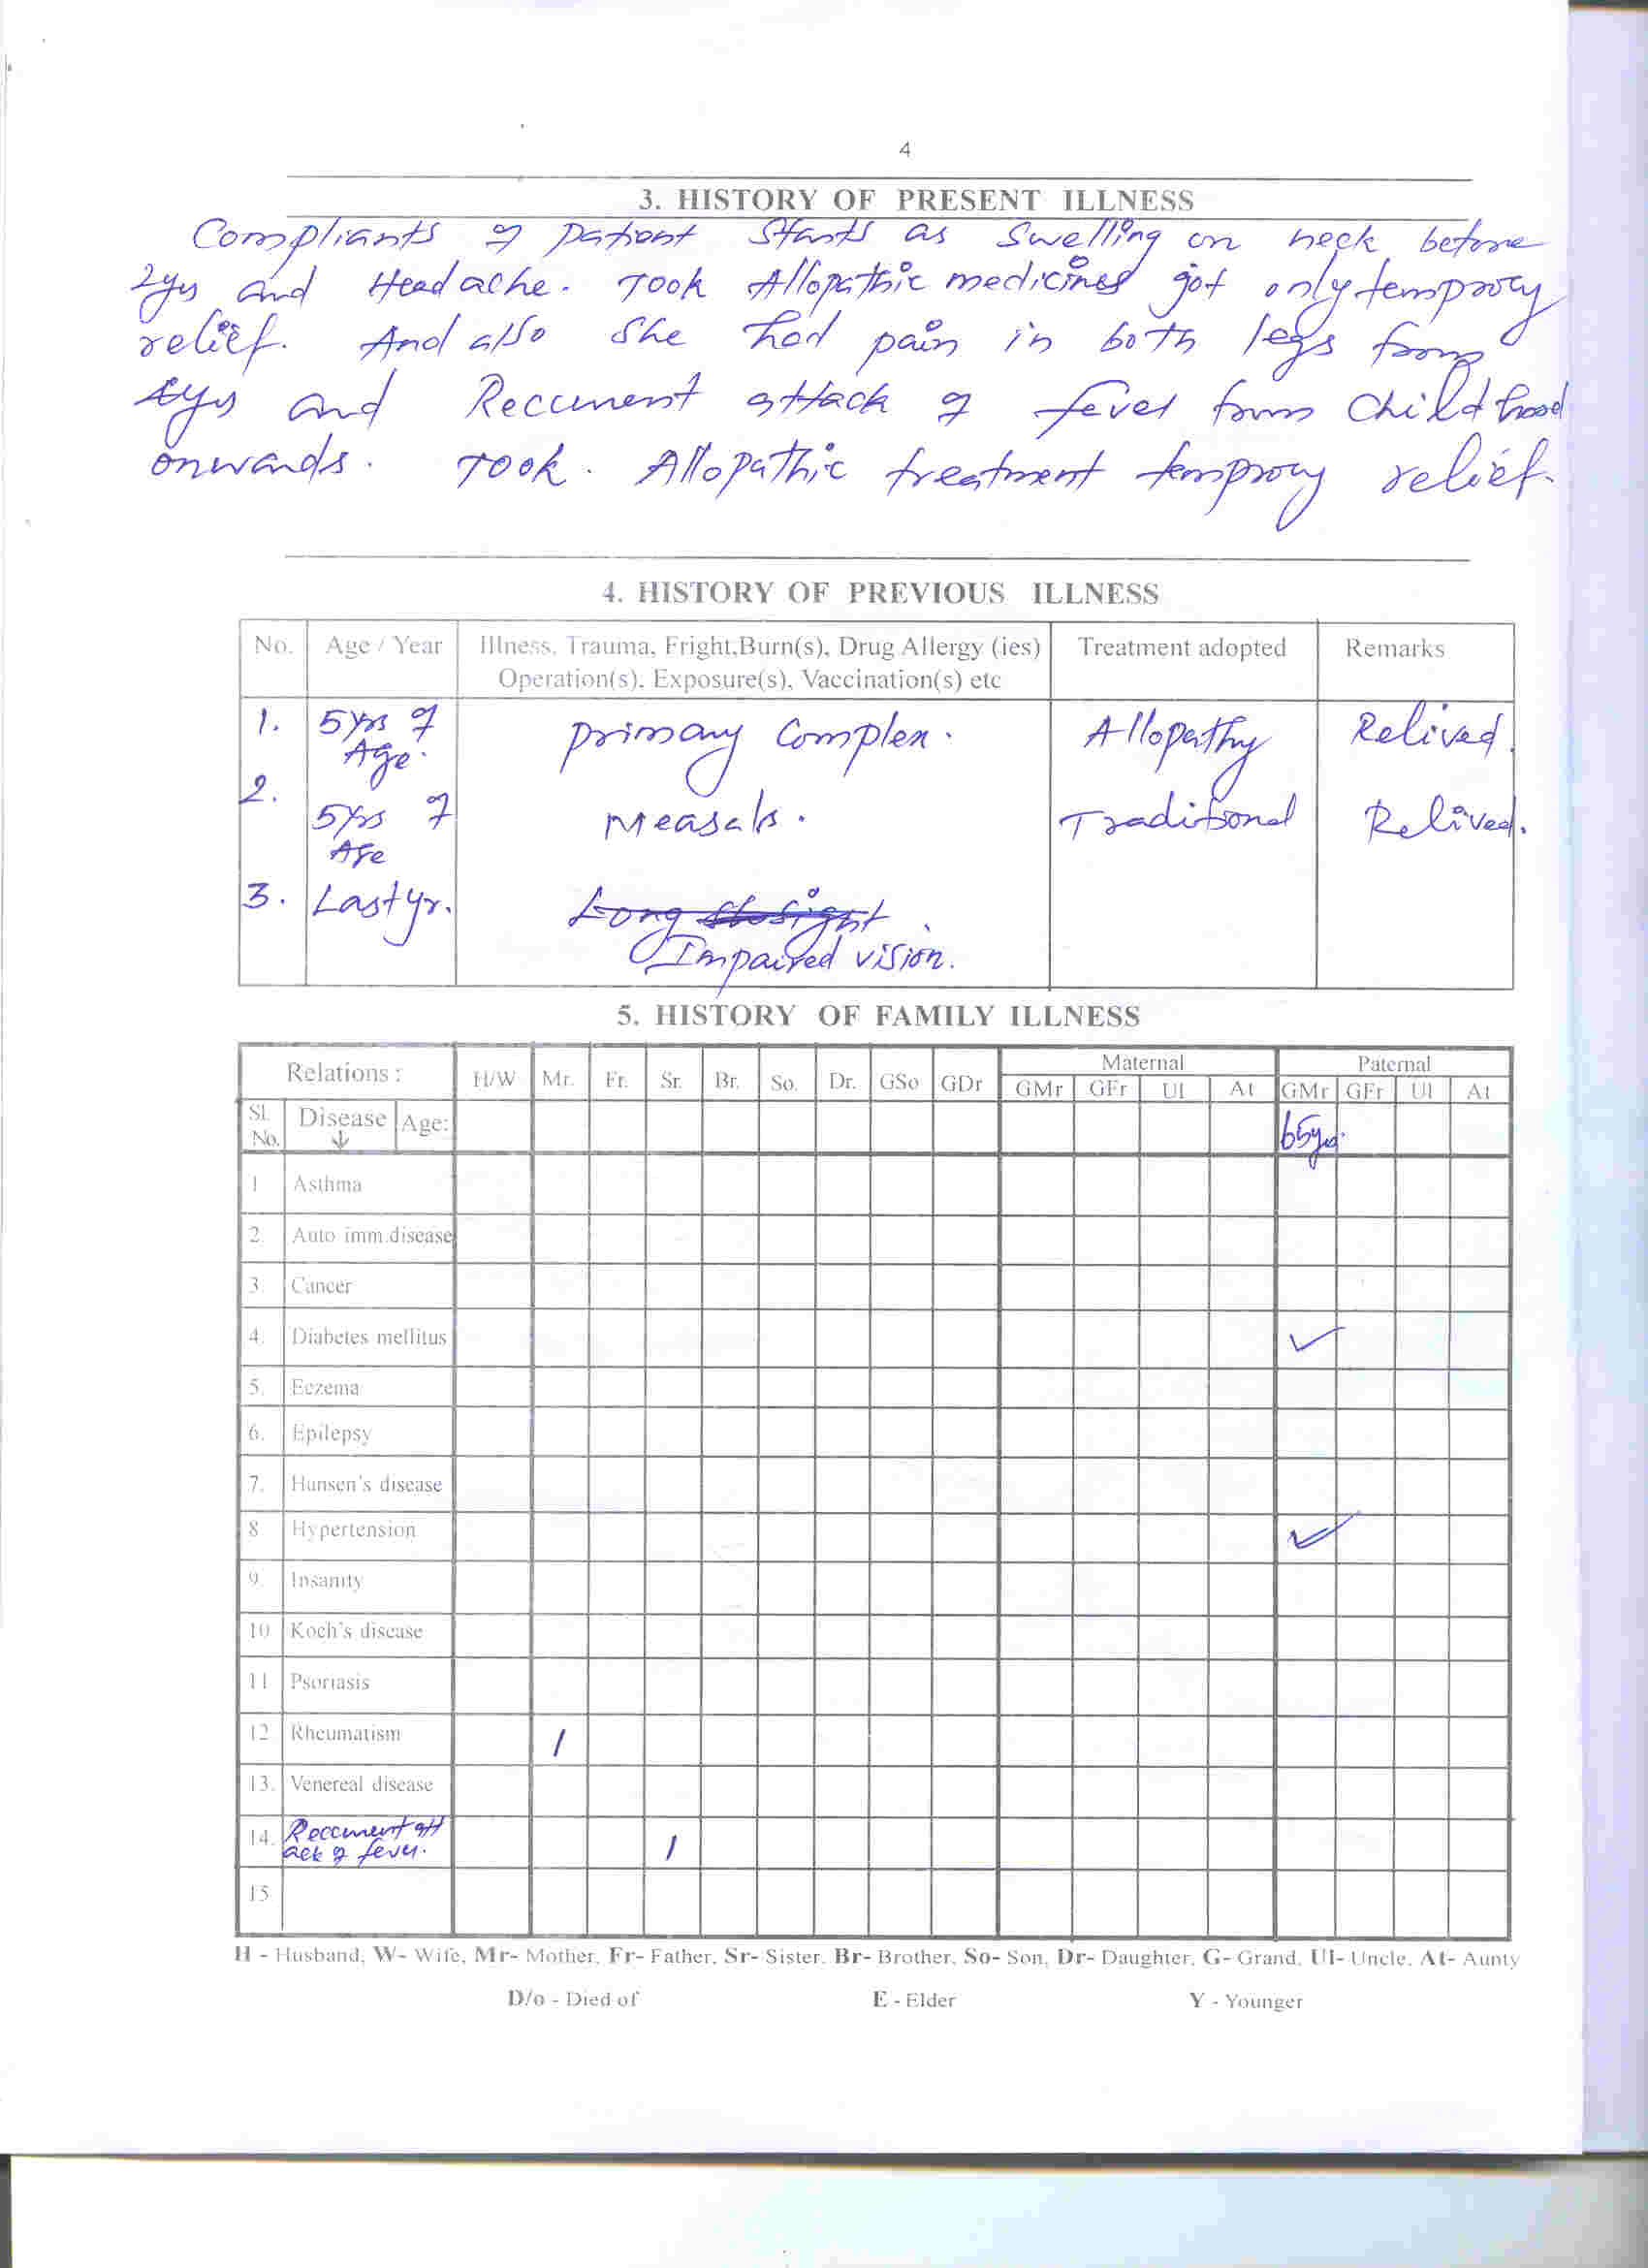 4
3. HISTORY OF PRESENT ILLNESS
Compliants of patient starts as Swelling on neck before
2yrs and Headache. Took Allopathic medicines got only temprory
relief. And also she had pain in both legs from
yrs and Reccurrent attack of fever from Childhood
onwards. Took. Allopathic treatment temprory relief.
4. HISTORY OF PREVIOUS ILLNESS
No. Age / Year Illness, Trauma, Fright,Burn(s), Drug Allergy (ies) Treatment adopted Remarks
Operation(s), Exposure(s), Vaccination(s) etc
1. 5yrs of Primary Complex. Allopathy Relived.
Age.
2. 5yrs of Measals. Traditional Relived.
Age
3. Last yr. Long sight
Impaired vision.
5. HISTORY OF FAMILY ILLNESS
Relations : H/W Mr. Fr. Sr. Br. So. Dr. GSo GDr Maternal Paternal
GMr GFr Ul At GMr GFr Ul At
Sl. No. Disease Age: 65yrs.
1 Asthma
2. Auto imm.disease
3. Cancer
4. Diabetes mellitus ✓
5. Eczema
6. Epilepsy
7. Hansen's disease
8 Hypertension ✓
9. Insanity
10 Koch's disease
11 Psoriasis
12 Rheumatism /
13. Venereal disease
14. Reccurrent att /
ack of fever.
15
H - Husband, W- Wife, Mr- Mother, Fr- Father, Sr- Sister, Br- Brother, So- Son, Dr- Daughter, G- Grand, Ul- Uncle, At- Aunty
D/o - Died of E - Elder Y - Younger